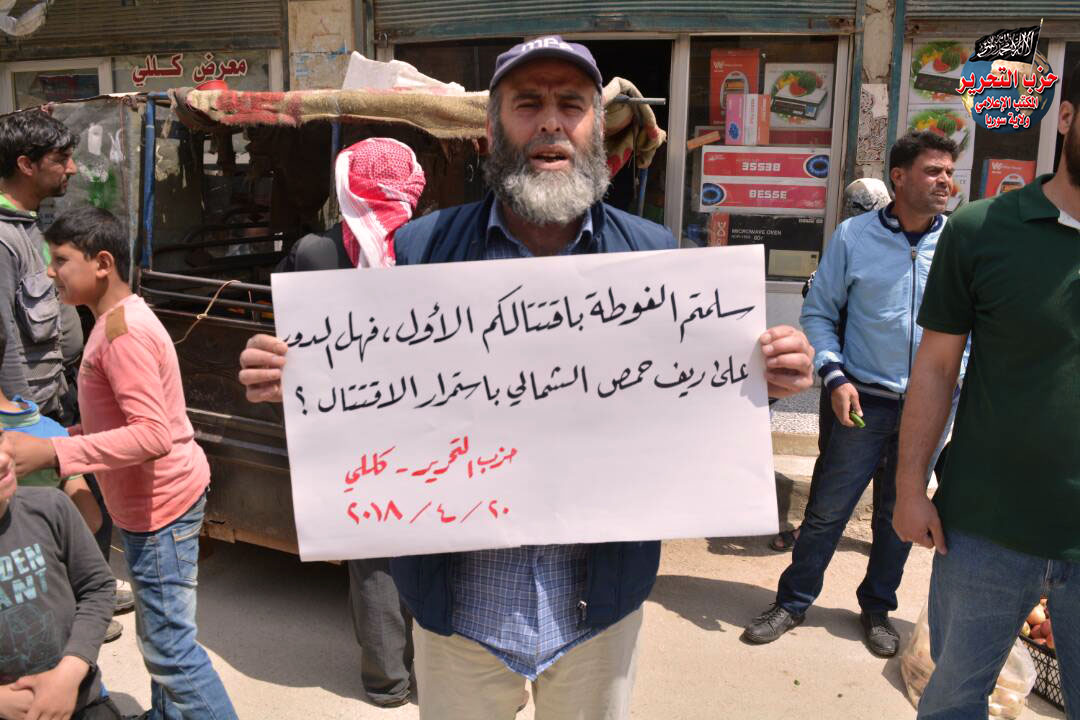 معرض كللي
حزب التحرير
المكتب الإعلامي
ولاية سوريا
BESSE
BESSE
MICROWAVE OVEN
سلمتم الغوطة باقتتالكم الأول، فهل الدور
على ريف حمص الشمالي باستمرار الاقتتال ؟
حزب التحرير - كللي
٢٠ / ٤ / ٢٠١٨
DEN
ANT